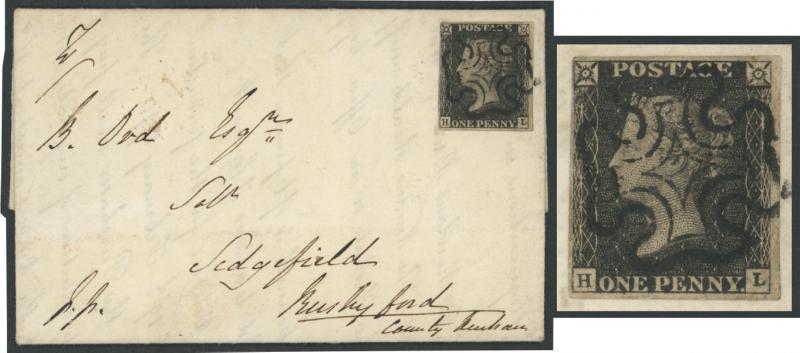 B. Ord Esqr
Solr
Sedgefield
Rushyford
County Durham
p.p.
POSTAGE
ONE PENNY
H L
POSTAGE
H ONE PENNY L